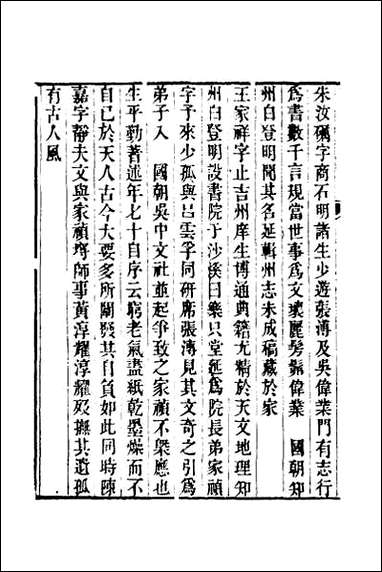 朱汝礪字商石明諸生少遊張溥及吳偉業門有志行
爲書數千言規當世事爲文瓌麗髣髴偉業　國朝知
州白登明聞其名延輯州志未成稿藏於家
王家祥字止吉州庠生博通典籍尤精於天文地理知
州白登明設書院于沙溪曰樂只堂延爲院長弟家禎
字予來少孤與呂雲孚同硏席張溥見其文奇之引爲
弟子入　國朝吳中文社並起爭致之家禎不槩應也
生平勤著述年七十自序云窮老氣盡紙乾墨燥而不
自已於天人古今大要多所闡發其自負如此同時陳
嘉字靜夫文與家禎埒師事黃淳耀淳耀歿撫其遺孤
有古人風